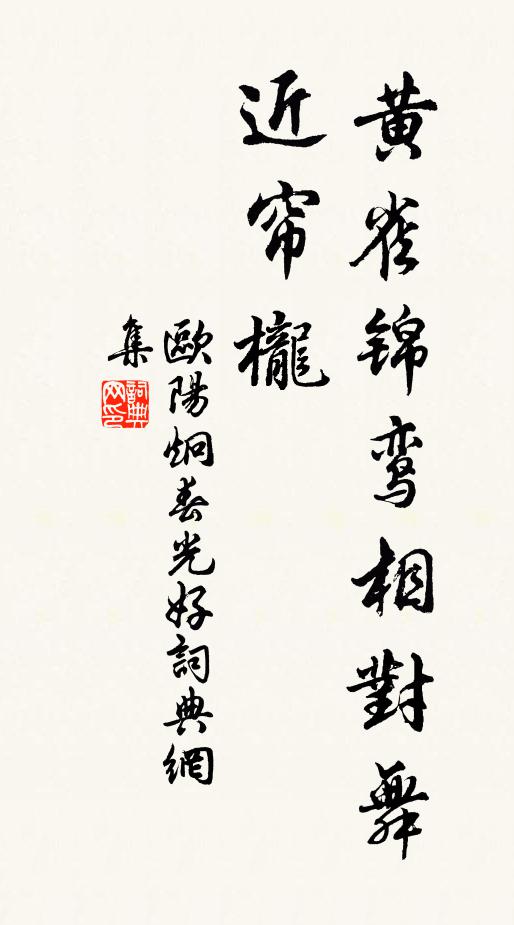 黄雀锦鸾相對舞
近帘櫳
歐陽炯春光好詞典網
集
詞典
网印